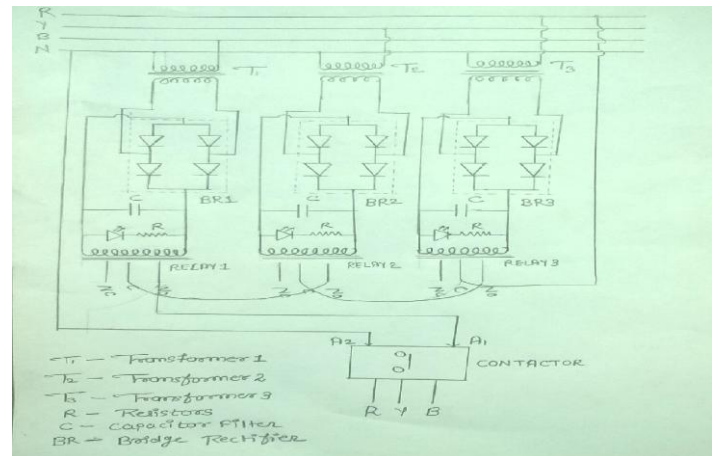 R
Y
B
N
T1 T2 T3
C C C
BR1 BR2 BR3
R R R
RELAY 1 RELAY 2 RELAY 3
A2 A1
CONTACTOR
R Y B
T1 - Transformer 1
T2 - Transformer 2
T3 - Transformer 3
R - Resistors
C - Capacitor Filter
BR - Bridge Rectifier